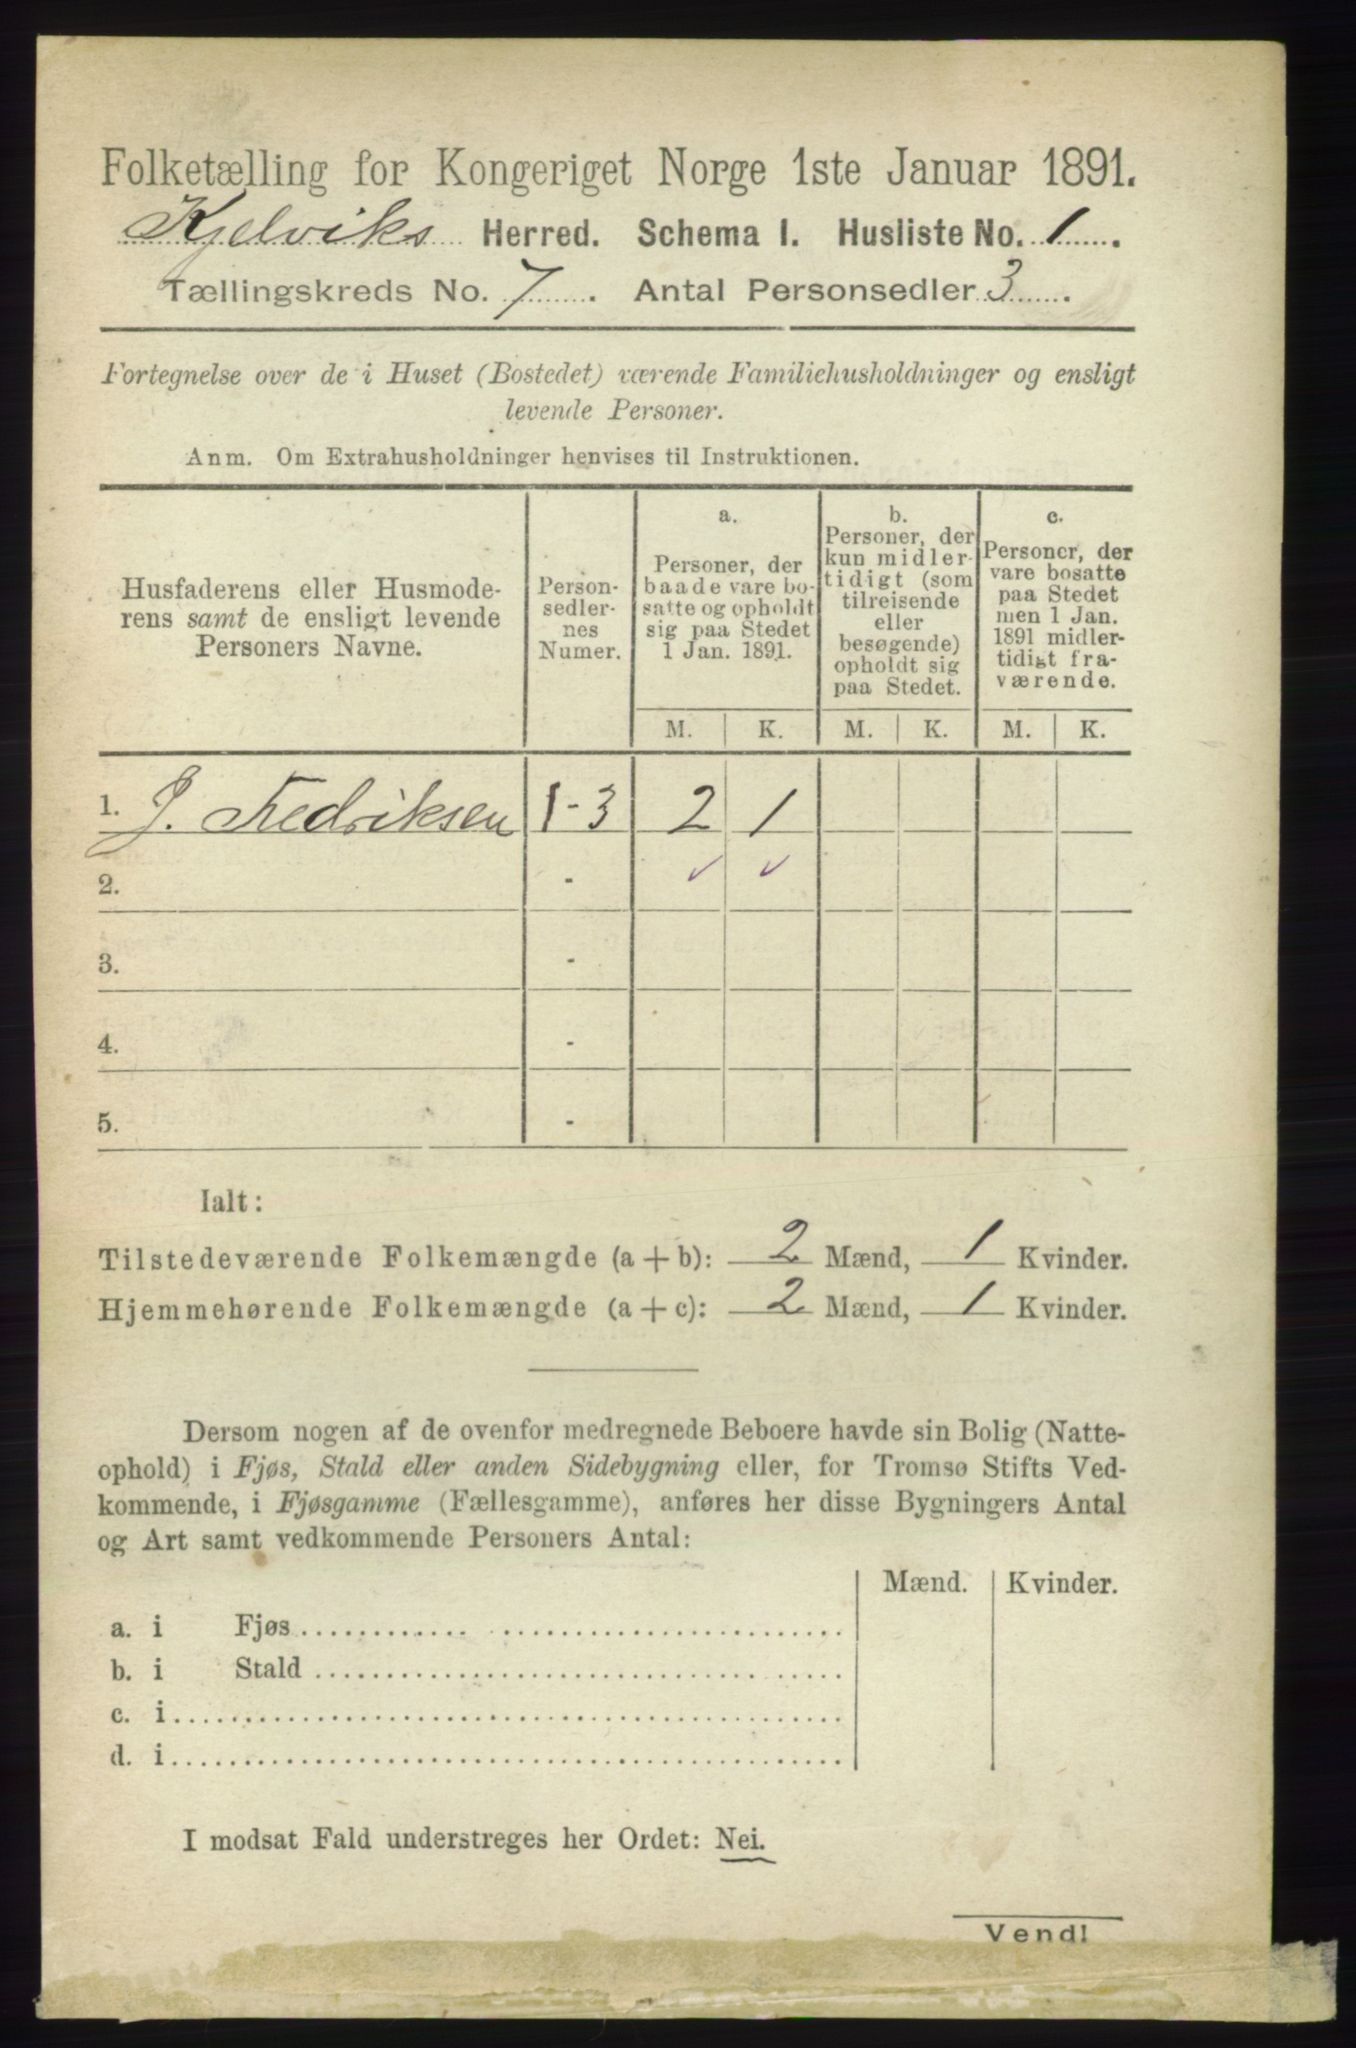 Folketælling for Kongeriget Norge 1ste Januar 1891.
Kjelviks Herred. Schema I. Husliste No. 1.
Tællingskreds No. 7. Antal Personsedler 3.
Fortegnelse over de i Huset (Bostedet) værende Familiehusholdninger og ensligt
levende Personer.
Anm. Om Extrahusholdninger henvises til Instruktionen.
Husfaderens eller Husmode-
rens samt de ensligt levende
Personers Navne.
Person-
sedler-
nes
Numer.
a.
Personer, der
baade vare bo-
satte og opholdt
sig paa Stedet
1 Jan. 1891.
b.
Personer, der
kun midler-
tidigt (som
tilreisende
eller
besøgende)
opholdt sig
paa Stedet.
c.
Personer, der
vare bosatte
paa Stedet
men 1 Jan.
1891 midler-
tidigt fra-
værende.
M. K. M. K. M. K.
1. J. Fredriksen 1-3 2 1
2. - ✓ ✓
3. -
4. -
5. -
Ialt:
Tilstedeværende Folkemængde (a + b): 2 Mænd, 1 Kvinder.
Hjemmehørende Folkemængde (a + c): 2 Mænd, 1 Kvinder.
Dersom nogen af de ovenfor medregnede Beboere havde sin Bolig (Natte-
ophold) i Fjøs, Stald eller anden Sidebygning eller, for Tromsø Stifts Ved-
kommende, i Fjøsgamme (Fællesgamme), anføres her disse Bygningers Antal
og Art samt vedkommende Personers Antal:
Mænd. Kvinder.
a. i Fjøs
b. i Stald
c. i
d. i
I modsat Fald understreges her Ordet: Nei.
Vend!